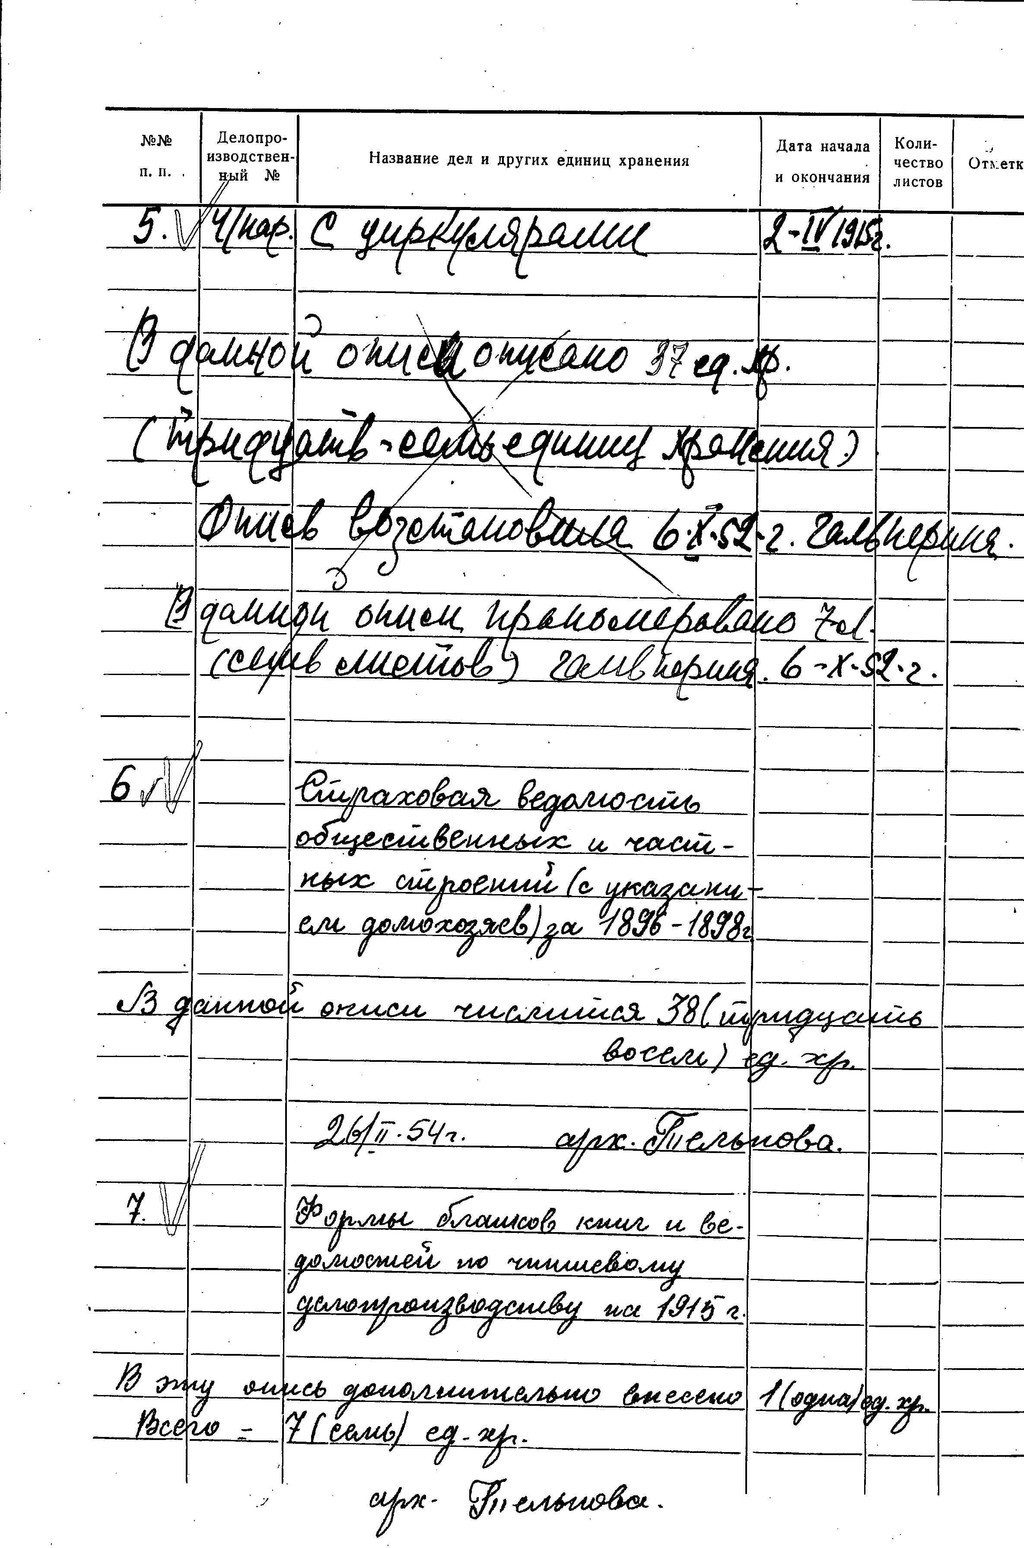 №№ п. п. Делопроизводствен-ный № Название дел и других единиц хранения Дата начала и окончания Коли-чество листов Отметк
5. 4/нар. С циркулярами 2-IV 1915г.
В данной описи описано 37 ед. хр.
(тридцать-семь единиц хранения)
Опись возстановила 6-X-52-г. Гальперина.
В данной описи пронумеровано 7 л.
(семь листов) Гальперина. 6-X-52-г.
6 Страховая ведомость
общественных и част-
ных строений (с указани-
ем домохозяев) за 1896-1898г
В данной описи числится 38 (тридцать
восем) ед. хр.
26/II-54г. арх. Тельпова.
7. Формы бланков книг и ве-
домостей по чиншевому
делопроизводству на 1915 г.
В эту опись дополнительно внесено 1 (одна) ед. хр.
Всего = 7 (семь) ед. хр.
арх. Тельпова.